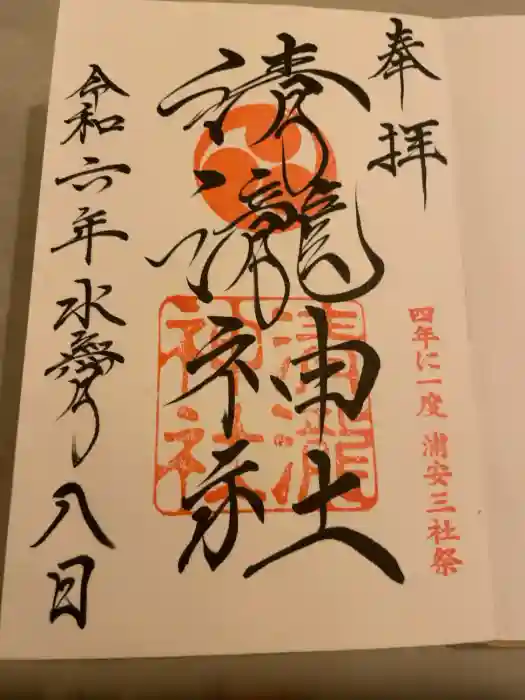 奉拝
清瀧神社
清瀧神社
四年に一度 浦安三社祭
令和六年水無月八日